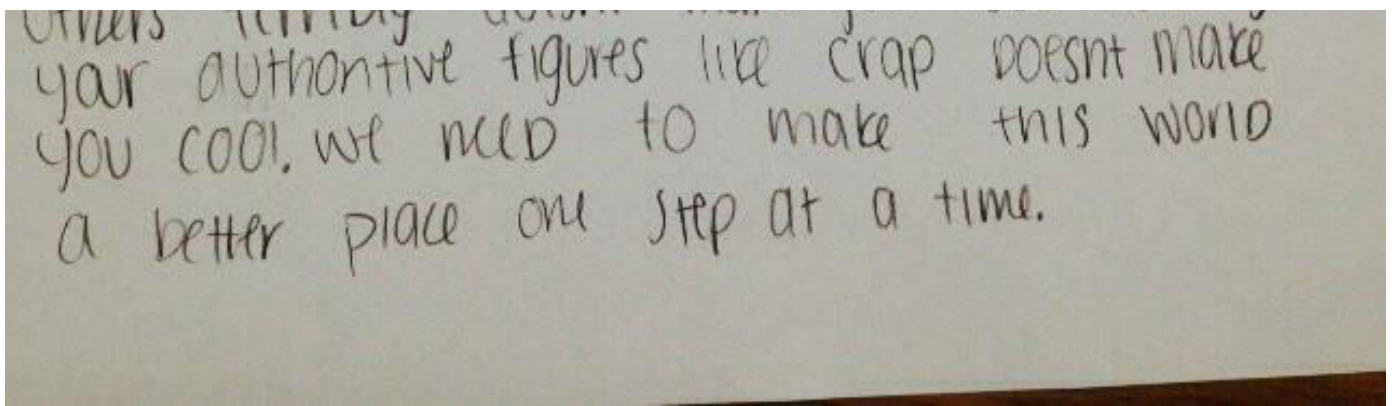 others terribly doesnt
your authoritive figures like crap Doesnt make
you cool. we neeD to make this worlD
a better place one step at a time.